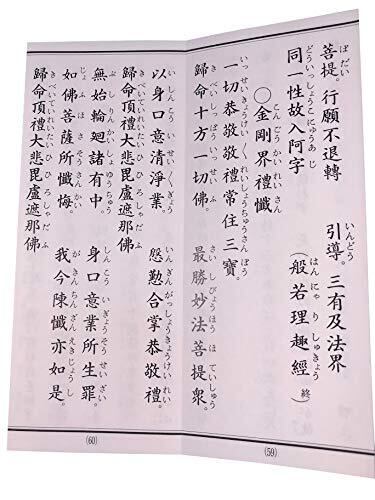 菩提。行願不退轉 引導。三有及法界
同一性故入阿字 (般若理趣經)(終)
〇金剛界禮懺
一切恭敬敬禮常住三寶。
歸命十方一切佛。 最勝妙法菩提衆。
(59)
以身口意清淨業。 慇懃合掌恭敬禮。
歸命頂禮大悲毘盧遮那佛
無始輪廻諸有中。 身口意業所生罪。
如佛菩薩所懺悔。 我今陳懺亦如是。
歸命頂禮大悲毘盧遮那佛
(60)